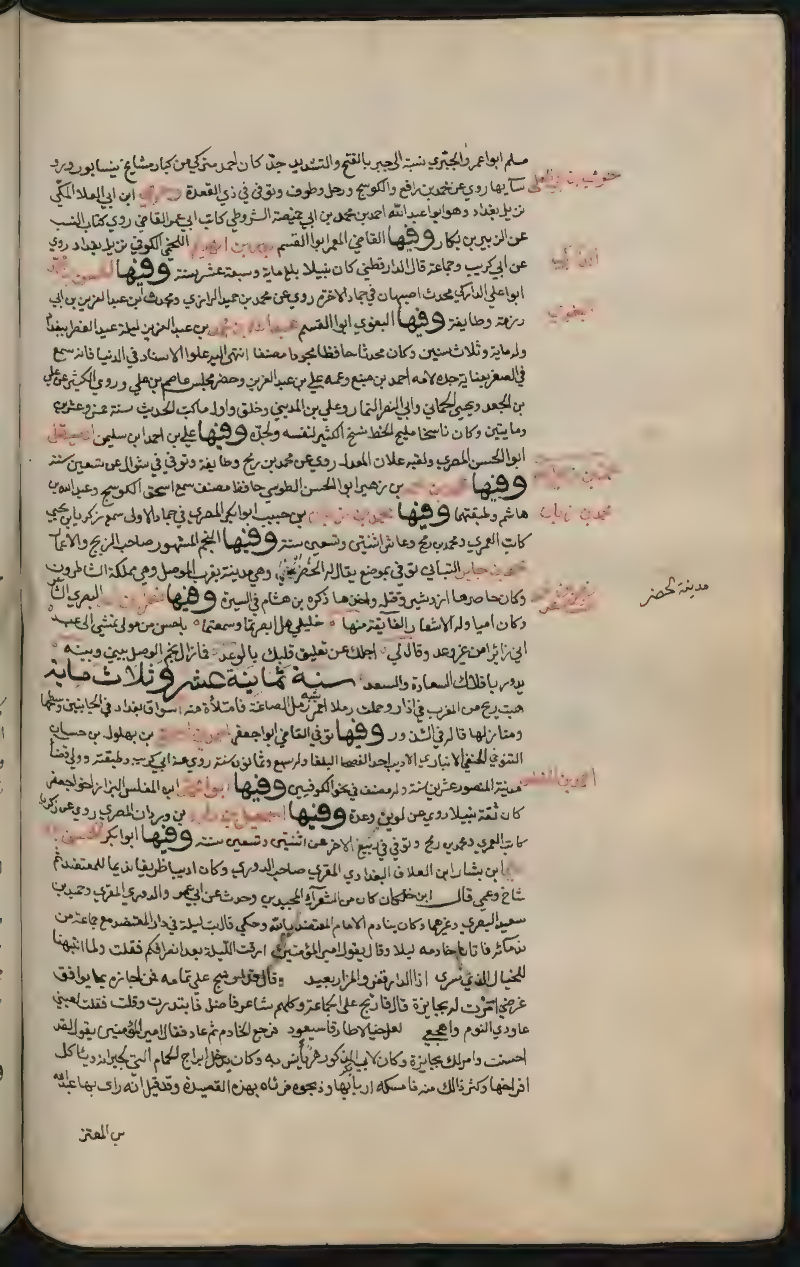 مسلم ابوا عمر والجيري نسبة الى جبر بالفتح والتشديد جد كان احمد مزكي من كبار مشايخ نيسابور
روى عن محمد بن رافع والكوسج ورحل وطوف وتوفي في ذي القعدة ابن ابي العلا المكي
نزيل بغداد وهو ابوا عبد الله احمد بن محمد بن ابي خميصة الشروطي كاتب ابي عمر القاضي روى كتاب النسب
عن الزبير بن بكار وفيها القاضي المعمر ابوا القسم اللخمي الكوفي نزيل بغداد روى
عن ابي كريب وجماعة قال الدارقطني كان نبيلا بلغ ماية وسبعة عشر سنة وفيها الحسن
ابوا علي الداركي محدث اصبهان في جماد الاخر روى عن محمد بن حميد الرازي ومحمد بن عبد العزيز بن ابي
رزمة وطايفة وفيها البغوي ابوا القسم بن عبد العزيز ليلة عيد الفطر ببغداد
وله ماية وثلاث سنين وكان محدثا حافظا مجودا مصنفا انتهى اليه علوا الاسناد في الدنيا فانه سمع
في الصغر بعناية جده لامه احمد بن منيع وعمه علي بن عبد العزيز وحضر مجلس عاصم بن علي وروى الكثير عن علي
بن الجعد ويحيى الحماني وابي النصر التمار وعلي بن المديني وخلق واول ما كتب الحديث سنة خمس وعشرين
ومايتين وكان ناسخا مليح الخط نسخ الكثير لنفسه ولجده وفيها علي بن احمد ابن سليمن
ابوا الحسن المصري ولقبه علان المعدل روى عن محمد بن رمح وطايفة وتوفي في شوال عن تسعين سنة
وفيها بن زهير ابوا الحسن الطوسي حافظا مصنف سمع اسحق الكوسج وعبد الله بن
هاشم وطبقتهما وفيها بن حبيب ابوا بكر المصري في جماد الاولى سمع زكريا بن يحيى
كاتب العمري ومحمد بن رمح وعاش اثنتي وتسعين سنة وفيها المنجم المشهور صاحب الزيج والاعمال
محمد بن جابر التباني توفي بموضع يقال له الحضر وهي مدينة بقرب الموصل وهي مملكة الساطرون
وكان حاصرها ازدشير وقتله واخذها ذكره بن هشام في السيرة وفيها البصري
وكان اميا وله الاشعار الفايقة منها خليلي هل ابصرتما وسمعتما باحسن من مولى تمشى الى عبد
اتى زائرا من غير وعد وقال لي اجلك عن تعليق قلبك بالوعد فما زال نجم الوصل بيني وبينه
يدور بافلاك السعادة والسعد سنة ثمانية عشر وثلاث ماية
هبت ريح من المغرب في اذار وحملت رملا احمر يشبه رمل الصاغة فامتلاة منه اسواق بغداد في الجانبين وسطحها
ومنازلها قاله في الشذور وفيها توفي القاضي ابوا جعفر بن بهلول بن حسان
التنوخي الحنفي الانباري الاديب احد الفصحا البلغا وله سبع وثمانون سنة روى عن ابي كريب وطبقته وولي قضا
مدينة المنصور عشرين سنة وله مصنف في نحو الكوفيين وفيها ابن المغلس البزاز اخوا جعفر
كان ثقة نبيلا روى عن لوين وعدة وفيها بن وردان المصري روى عن زكريا
كاتب العمري ومحمد بن رمح وتوفي في ربيع الاخر عن اثنتي وتسعين سنة وفيها ابوا بكر
ابن بشار ابن العلاف البغدادي المقري صاحب الدوري وكان اديبا ظريفا نديما للمعتضد ثم
شاخ وعمي قال ابن خلكان كان من الشعراء المجيدين وحدث عن ابي عمر والدوري المقري وحميد بن
سعيد البصري وغيرهما وكان ينادم الامام المعتضد بالله وحكى قال بت ليلة في دار المعتضد مع جماعة من
ندمائه فاتانا خادمه ليلا وقال يقول امير المؤمنين ارقت الليلة بعد انصرافكم فقلت ولما انتبهنا
للخيال الذي سرى اذا الدار قفر والمزار بعيد وقال قد ارتج علي تمامه فمن اجازه بما يوافق
غرضي امرت له بجايزة قال فارتج على الجماعة وكلهم شاعر فاضل فابتدرت وقلت فقلت لعيني
عاودي النوم واهجعي لعل خيالا طارقا سيعود فرجع الخادم ثم عاد فقال امير المؤمنين يقول لقد
احسنت وامر لك بجايزة وكان لابي بكر المذكور هر يأنس به وكان يدخل ابراج الحمام التي لجيرانه وياكل
افراخها وكثر ذالك منه فامسكه اربابها وذبحوه فرثاه بهذه القصيدة وقد قيل انه رثى بها عبد الله
بن المعتز
مدينة الحضر
احمد بن المغلس
البغوي
محمد بن زبان